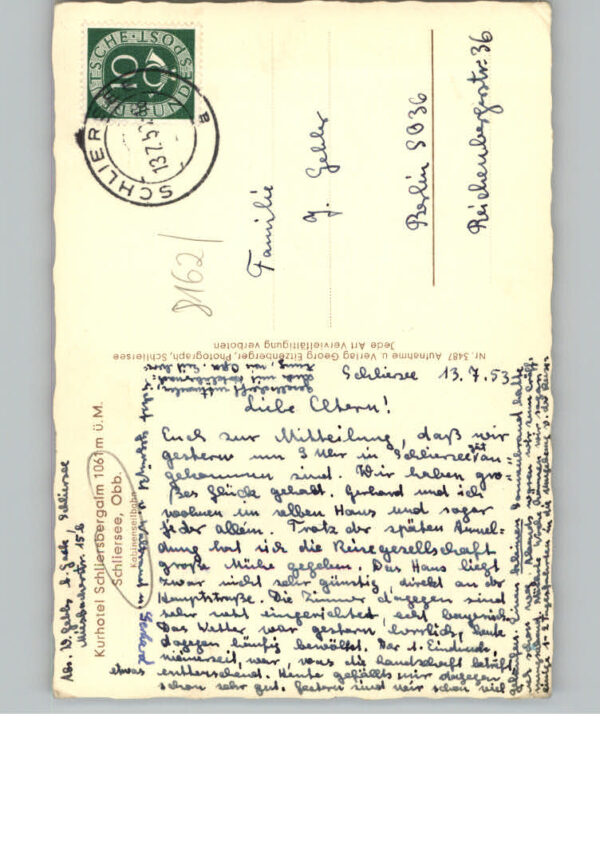 DEUTSCHE BUNDESPOST
20
SCHLIERSEE
13.7.53
a
8162/
Familie
J. Gebbs
Berlin SO36
Reichenbergerstr. 36
Nr. 3487 Aufnahme u. Verlag Georg Eitzenberger, Photograph, Schliersee
Jede Art Vervielfältigung verboten
Kurhotel Schliersbergalm 1061 m ü. M.
Schliersee, Obb.
Kabinenseilbahn
Schliersee
Miesbacherstr. 15 b
Schliersee 13.7.53
Liebe Eltern!
Euch zur Mitteilung, daß wir
gestern um 3 Uhr in Schliersee gut an-
gekommen sind. Wir haben gro-
ßes Glück gehabt. Gerhard und ich
wohnen im selben Haus und sogar
jeder allein. Trotz der späten Anmel-
dung hat sich die Reisegesellschaft
große Mühe gegeben. Das Haus liegt
zwar nicht sehr günstig direkt an der
Hauptstraße. Die Zimmer dagegen sind
sehr nett eingerichtet, echt bayrisch.
Das Wetter war gestern herrlich, heute
dagegen häufig bewölkt. Der 1. Eindruck,
meinerseit, war, was die Landschaft betrifft
etwas enttäuschend. Heute gefällts mir dagegen
schon sehr gut. Gestern sind wir schon viel
gelaufen. Einen kleinen Sonnenbrand habe
ich schon weg.